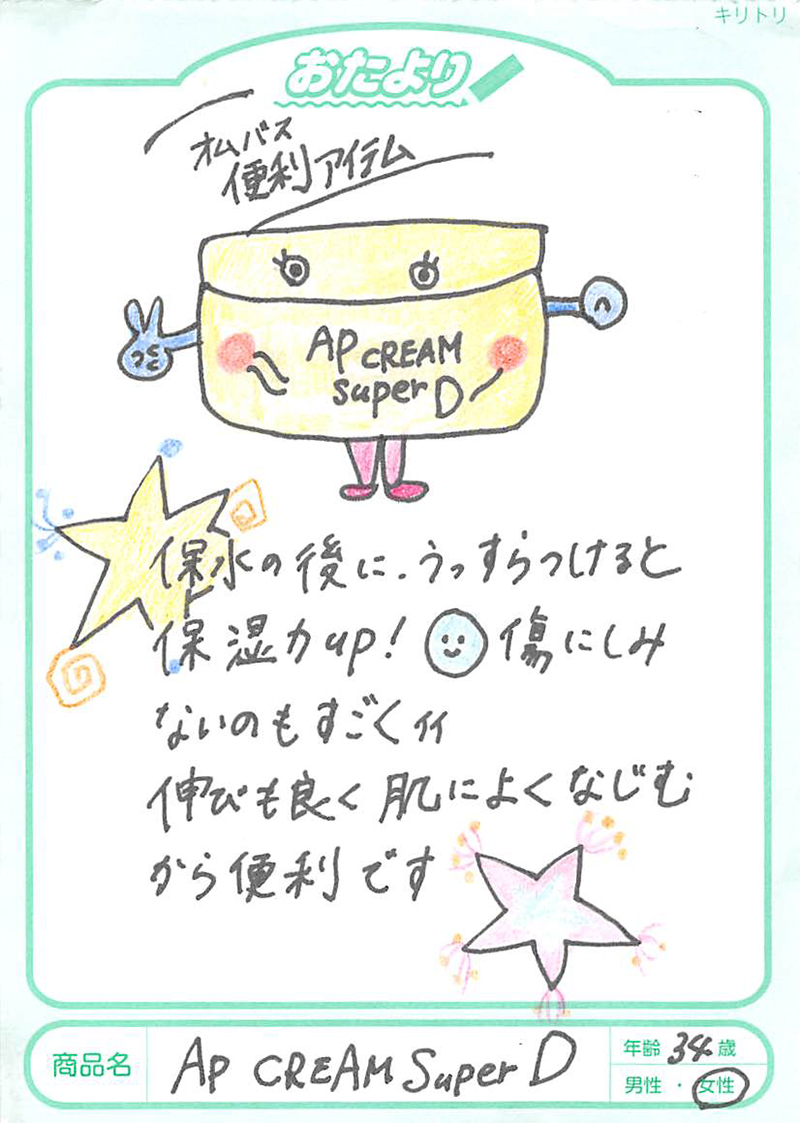 キリトリ
おたより
オムバス
便利アイテム
AP CREAM
super D
保水の後に、うっすらつけると
保湿力up! 傷にしみ
ないのもすごくイイ
伸びも良く肌によくなじむ
から便利です
商品名 AP CREAM Super D
年齢 34歳
男性・女性